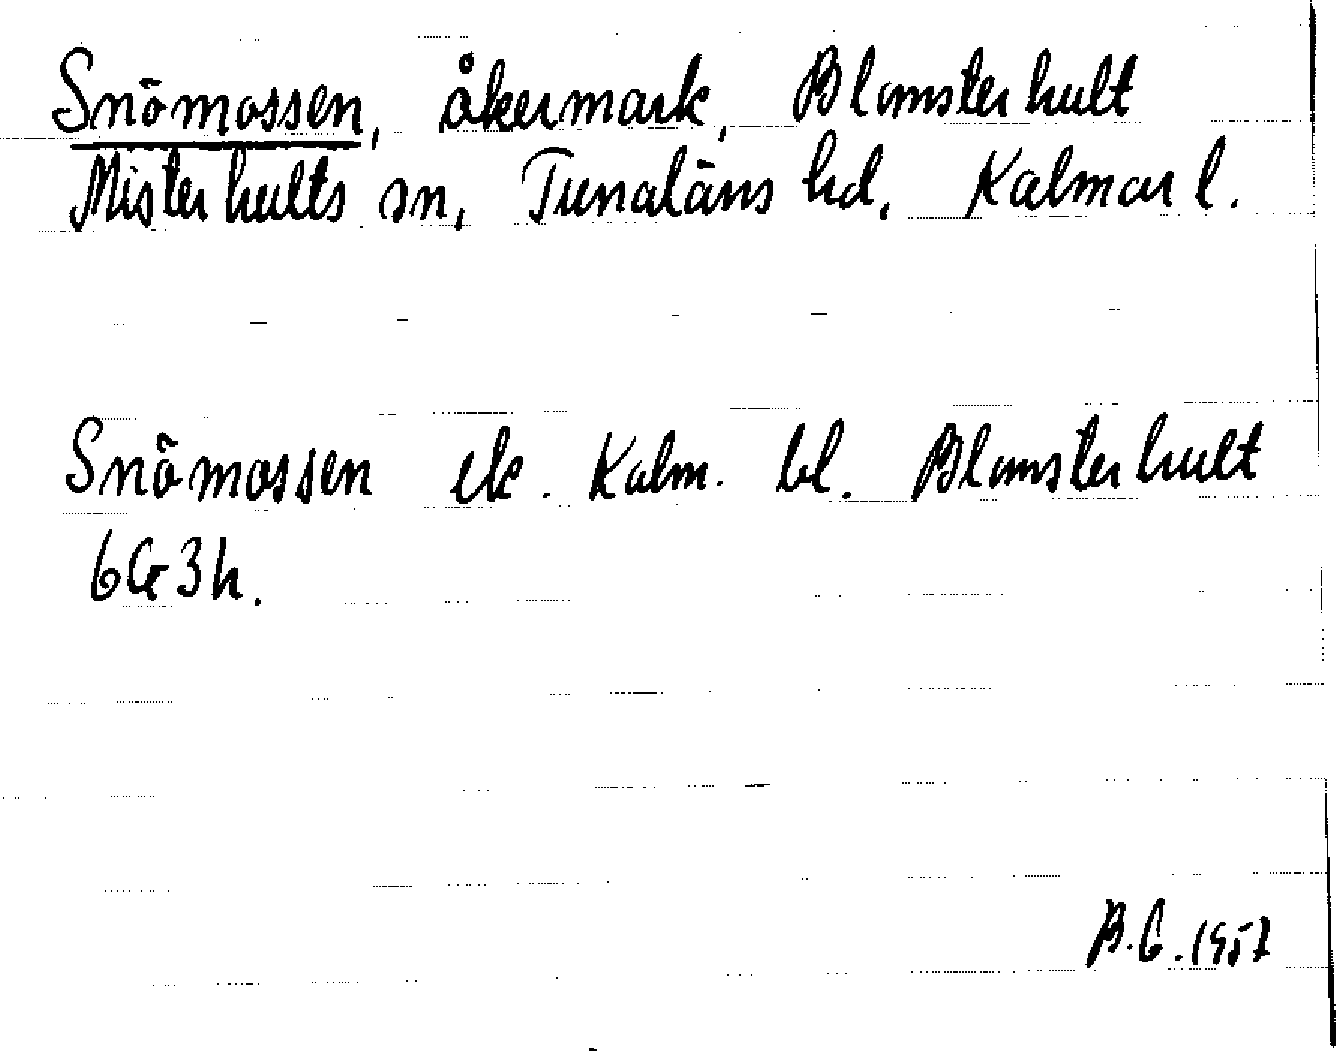 Snömossen, åkermark, Blomsterhult
Misterhults sn, Tunaläns hd. Kalmar l.
Snömossen ek. Kalm. bl. Blomsterhult
6G3h.
B.G. 1957